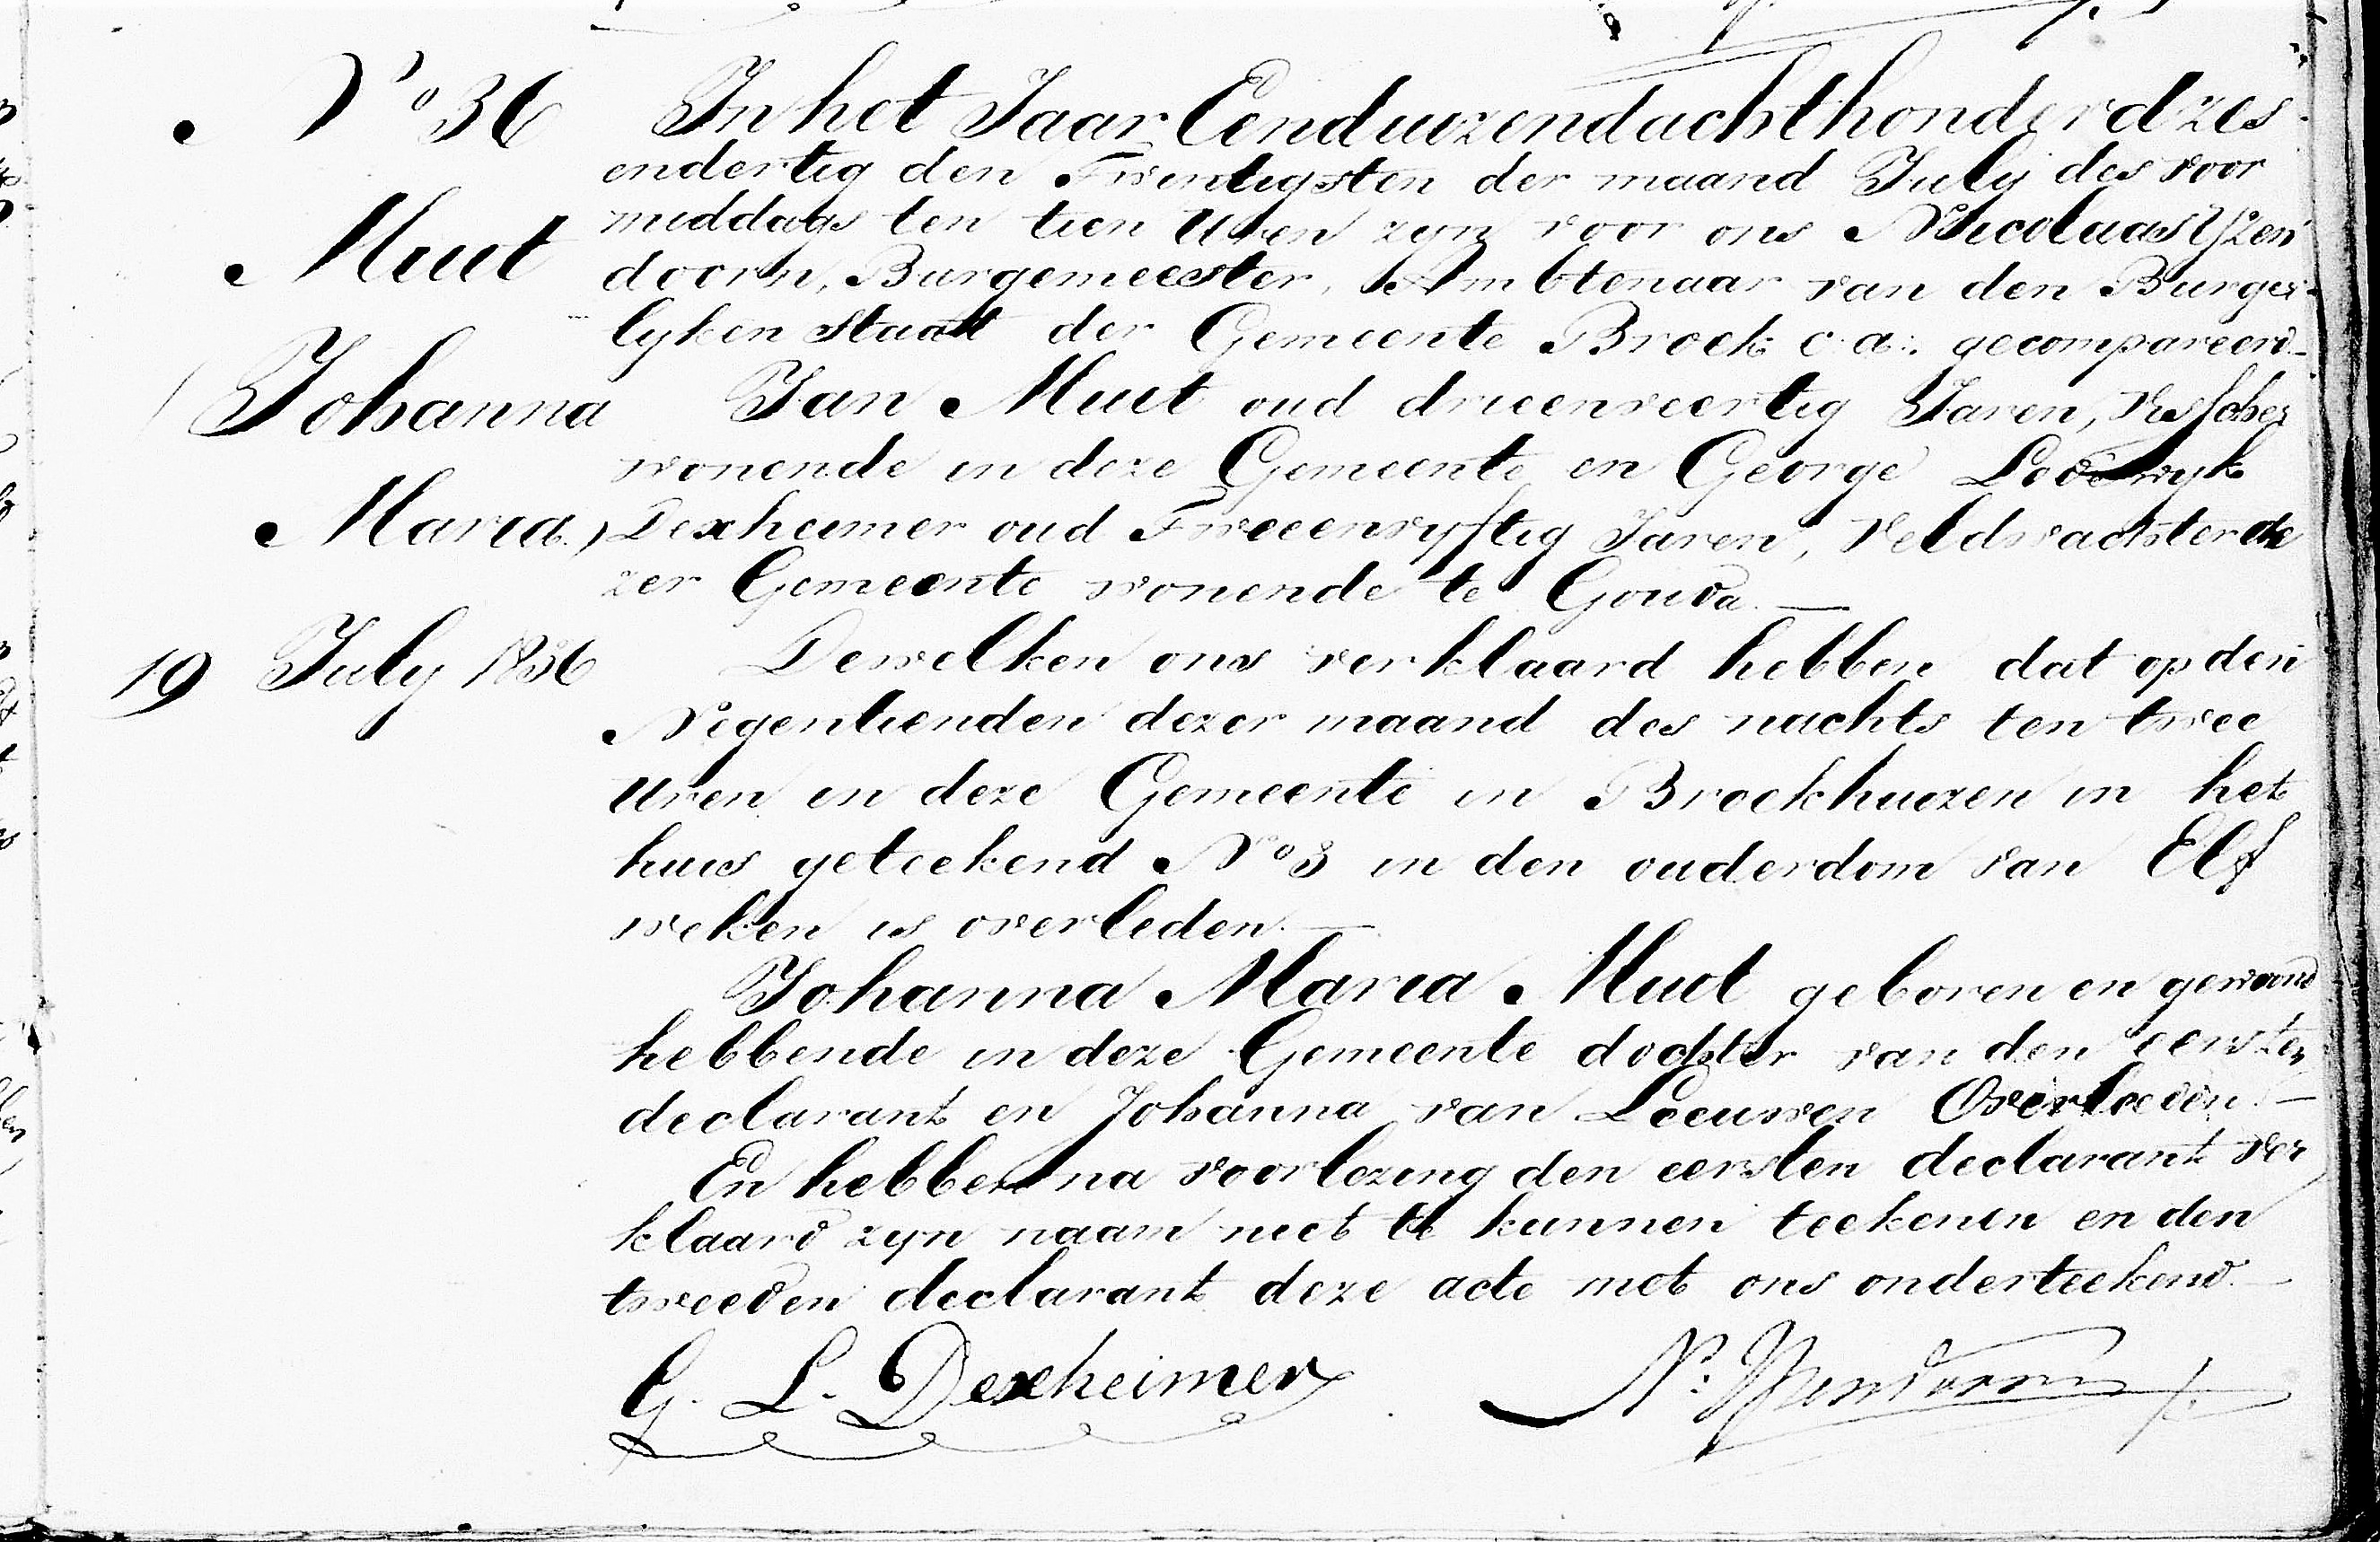 No 36
Muit
Johanna
Maria
19 July 1836
In het Jaar Eenduizendachthonderdzes
endertig den Twintigsten der maand July des voor
middags ten tien Uren zyn voor ons Nicolaas Yzen
doorn, Burgemeester, Ambtenaar van den Burger
lyken Staat der Gemeente Broek c.a. gecompareerd
Jan Muit oud drieenveertig Jaren, Visscher
wonende in deze Gemeente en George Lodewyk
Dexheimer oud Tweeenvyftig Jaren, Veldwachter de
zer Gemeente wonende te Gouda. —
Dewelken ons verklaard hebben dat op den
Negentienden dezer maand des nachts ten twee
Uren in deze Gemeente in Broekhuizen in het
huis geteekend No 3 in den ouderdom van Elf
weken is overleden. —
Johanna Maria Muit geboren en gewoond
hebbende in deze Gemeente dochter van den eersten
declarant en Johanna van Leeuwen Overleden. —
En hebben na voorlezing den eersten declarant ver
klaard zyn naam niet te kunnen teekenen en den
tweeden declarant deze acte met ons onderteekend. —
G. L. Dexheimer
N: Yzendoorn